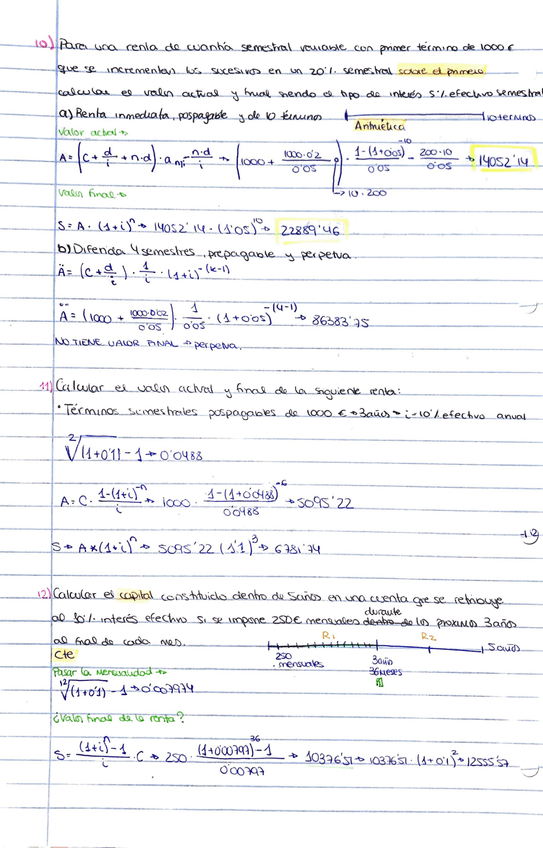 10) Para una renta de cuantía semestral variable con primer término de 1000 €
que se incrementan los sucesivos en un 20% semestral sobre el primero
calcular el valor actual y final siendo el tipo de interés 5% efectivo semestral
a) Renta inmediata, pospagable y de 10 términos
10 términos
Aritmética
Valor actual →
A = (C + d/i + n·d) · a n¬i - n·d/i → (1000 + 1000·0'2/0'05 ) · 1-(1+0'05)^-10/0'05 - 200·10/0'05 → 14052'14
↳ 10·200
Valor final →
S = A · (1+i)^n → 14052'14 · (1'05)^10 → 22889'46
b) Diferida 4 semestres, prepagable y perpetua.
Ä = (C + d/i) · 1/i · (1+i)^-(k-1)
Ä = (1000 + 1000·0'02/0'05) · 1/0'05 · (1+0'05)^-(4-1) → 86383'75
NO TIENE VALOR FINAL → perpetua.
11) Calcular el valor actual y final de la siguiente renta:
· Términos semestrales pospagables de 1000 € → 3 años → i - 10% efectivo anual
²√(1+0'1) - 1 → 0'0488
A = C · 1-(1+i)^-n/i → 1000 · 1-(1+0'0488)^-6/0'0488 → 5095'22
S → A*(1+i)^n → 5095'22 (1'1)^3 → 6781'74
12) Calcular el capital constituido dentro de 5 años en una cuenta que se retribuye
al 10% interés efectivo si se impone 250€ mensuales dentro de durante los proximos 3 años
al final de cada mes.
R1
R2
5 años
Cte
250
mensuales
3 años
36 meses
Pasar la mensualidad →
¹²√(1+0'1) - 1 → 0'007974
¿Valor final de la renta?
S = (1+i)^n - 1/i · C → 250 · (1+0'00797)^36 - 1/0'00797 → 10376'51 → 10376'51 · (1+0'1)^2 → 12555'57